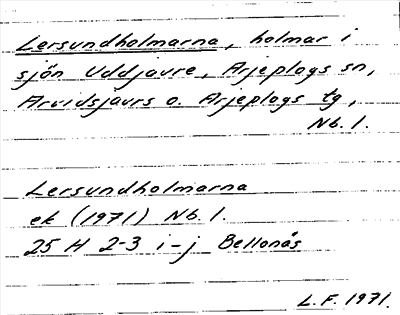 Lersundholmarna, holmar i
sjön Uddjaure, Arjeplogs sn,
Arvidsjaurs o. Arjeplogs tg,
Nb. l.
Lersundholmarna
ek (1971) Nb. l.
25 H 2-3 i-j Bellonäs
L.F. 1971.